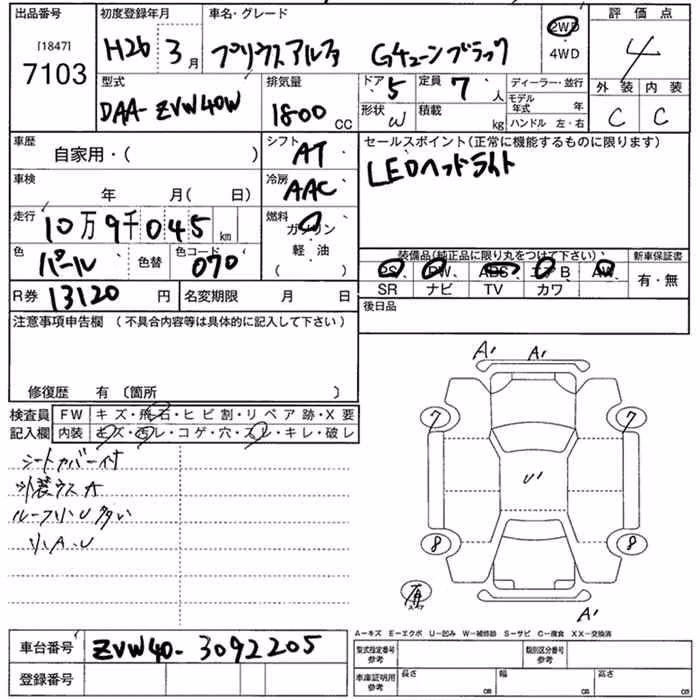 出品番号
[1847]
7103
初度登録年月
H26 3月
車名・グレード
プリウスアルファ Gチューンブラック
2WD
4WD
評価点
4
外装 内装
C C
型式
DAA-ZVW40W
排気量
1800 CC
ドア
5
形状
W
定員
7人
積載
kg
ディーラー・並行
モデル年式 年
ハンドル 左・右
車歴
自家用・( )
シフト
AT
セールスポイント(正常に機能するものに限ります)
LEDヘッドライト
車検
年 月( 日)
冷房
AAC
走行
10万9千045km
燃料
ガソリン
軽・油
( )
色
パール
色替
色コード
070
装備品(純正品に限り丸をつけて下さい)
PS. PW. ABS エアB AW.
SR ナビ TV カワ
新車保証書
有・無
R券 13120円
名変期限 月 日
後日品
注意事項申告欄 (不具合内容等は具体的に記入して下さい)
修復歴 有 〔箇所 〕
検査員記入欄
FW キズ・飛石・ヒビ割・リペア跡・X要
内装 キズ・汚レ・コゲ・穴・スレ・キレ・破レ
シートカバー付
外装ウスA
ルーフ小U多い
小A.U
A' A'
7 7
U'
8 8
有
スペア
A'
A-キズ E-エクボ U-凹み W-補修跡 S-サビ C-腐食 XX-交換済
車台番号 ZVW40-3092205
登録番号
型式指定番号
参考
類別区分番号
参考
車庫証明用
参考
長さ cm
幅 cm
高さ cm